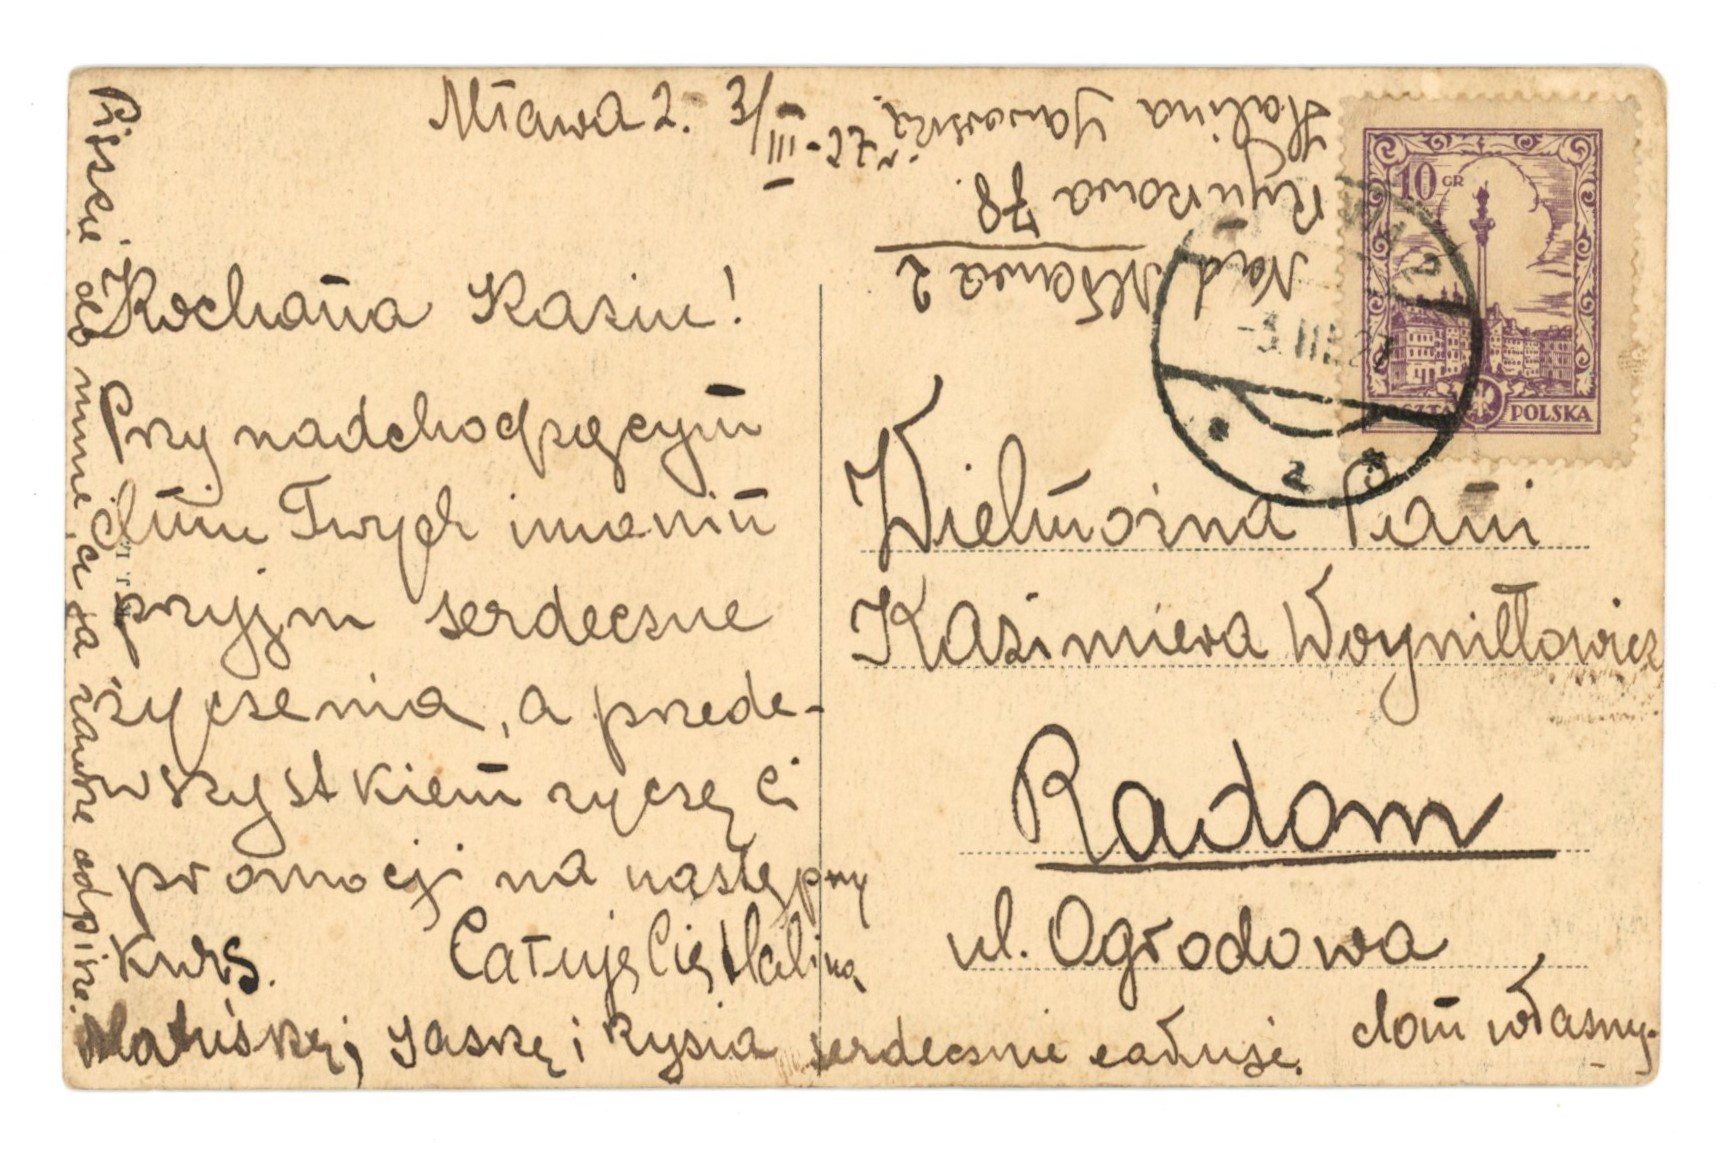 Mława 2. 3/III-27 r.
Kochana Kaziu!
Przy nadchodzącym
dniu Twych imienin
przyjm serdeczne
życzenia, a przede-
wszystkiem życzę Ci
promocji na następny
kurs. Całuję Cię Halina
Matuśkę, Jaśkę i Rysia serdecznie całuję.
Piszcie do mnie, a ja zawsze odpiszę.
Nad. Mława 2
Rynkowa 78.
Halina Jaworska
10 GR
POCZTA POLSKA
-3.III.27
2 a
Wielmożna Pani
Kazimiera Woyniłłowicz
Radom
ul. Ogrodowa
dom własny.